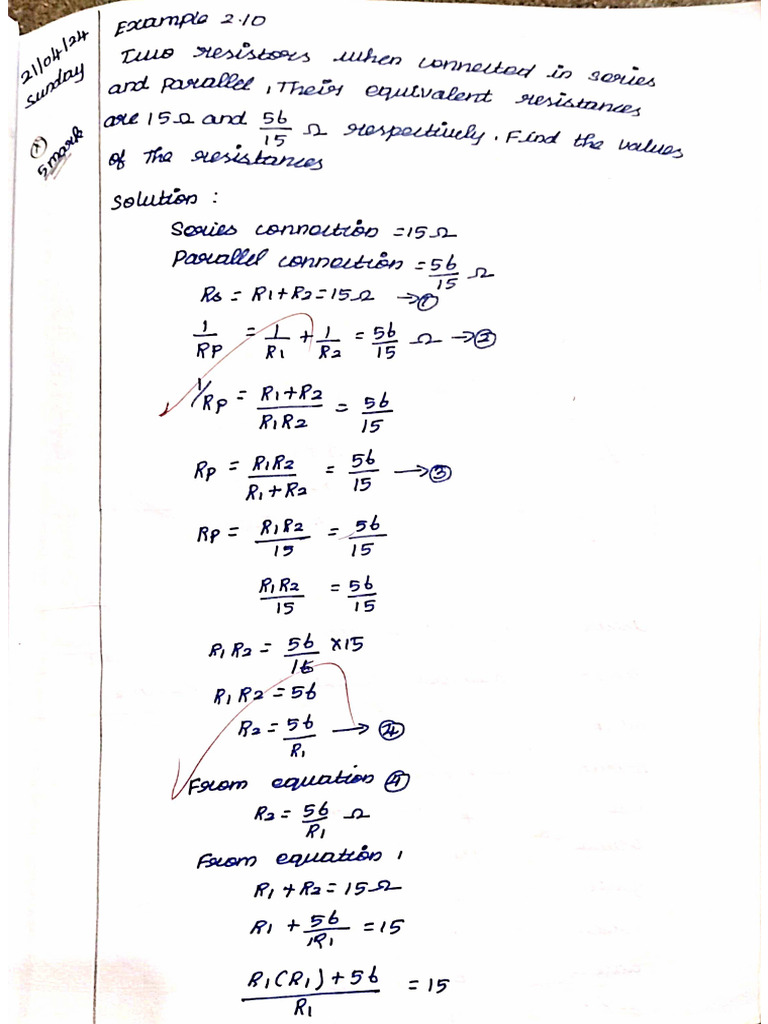 21/04/24
Sunday
(*)
5 mark
Example 2.10
Two resistors when connected in series
and parallel, Their equivalent resistances
are 15Ω and 56/15 Ω respectively. Find the values
of the resistances
Solution :
Series connection = 15Ω
Parallel connection = 56/15 Ω
Rs = R1+R2 = 15Ω → ①
1/RP = 1/R1 + 1/R2 = 56/15 Ω → ②
1/RP = R1+R2/R1R2 = 56/15
RP = R1R2/R1+R2 = 56/15 → ③
RP = R1R2/15 = 56/15
R1R2/15 = 56/15
R1R2 = 56/15 ×15
R1R2 = 56
R2 = 56/R1 → ④
From equation ④
R2 = 56/R1 Ω
From equation 1
R1+R2 = 15Ω
R1 + 56/R1 = 15
R1(R1)+56/R1 = 15